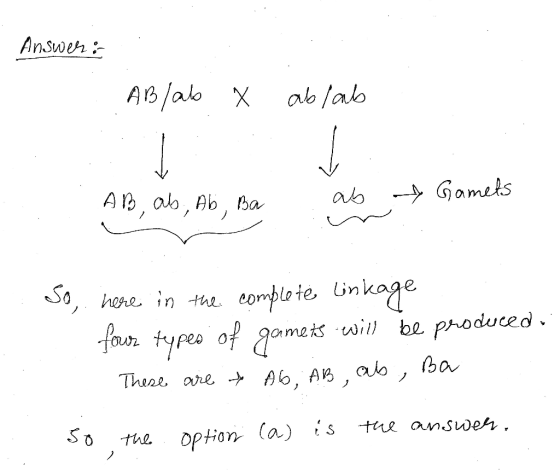 Answer :-
AB/ab X ab/ab
AB, ab, Ab, Ba ab → Gamets
So, here in the complete linkage
four types of gamets will be produced.
These are → Ab, AB, ab, Ba
So, the option (a) is the answer.